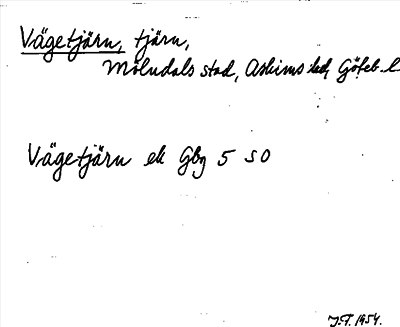 Vägetjärn, tjärn,
Mölndals stad, Askims hd, Göteb. l
Vägetjärn ek Gbg 5 SO
J.F. 1954.